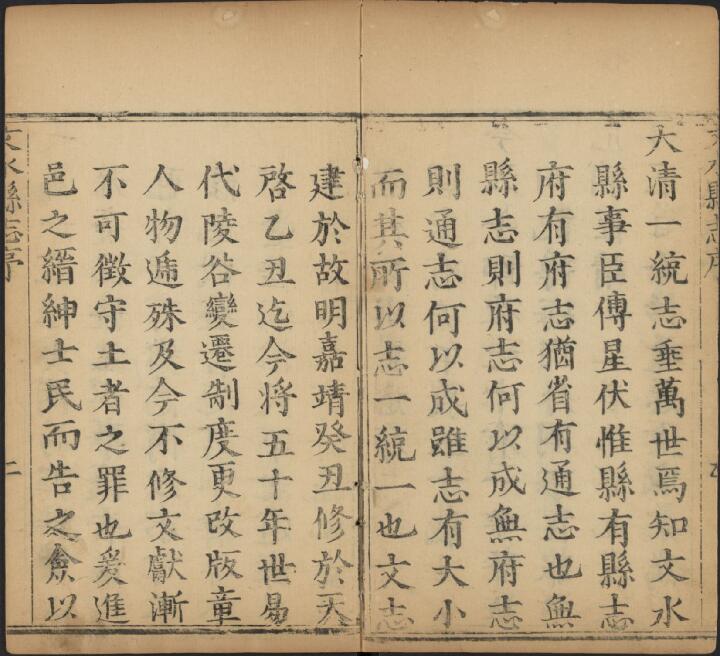 大清一統志垂萬世焉知文水
縣事臣傅星伏惟縣有縣志
府有府志猶省有通志也無
縣志則府志何以成無府志
則通志何以成雖志有大小
而其所以志一統一也文志
建於故明嘉靖癸丑修於天
啓乙丑迄今將五十年世易
代陵谷變遷制度更改版章
人物遞殊及今不修文獻漸
不可徵守土者之罪也爰進
邑之縉紳士民而告之僉以
文水縣志序
二